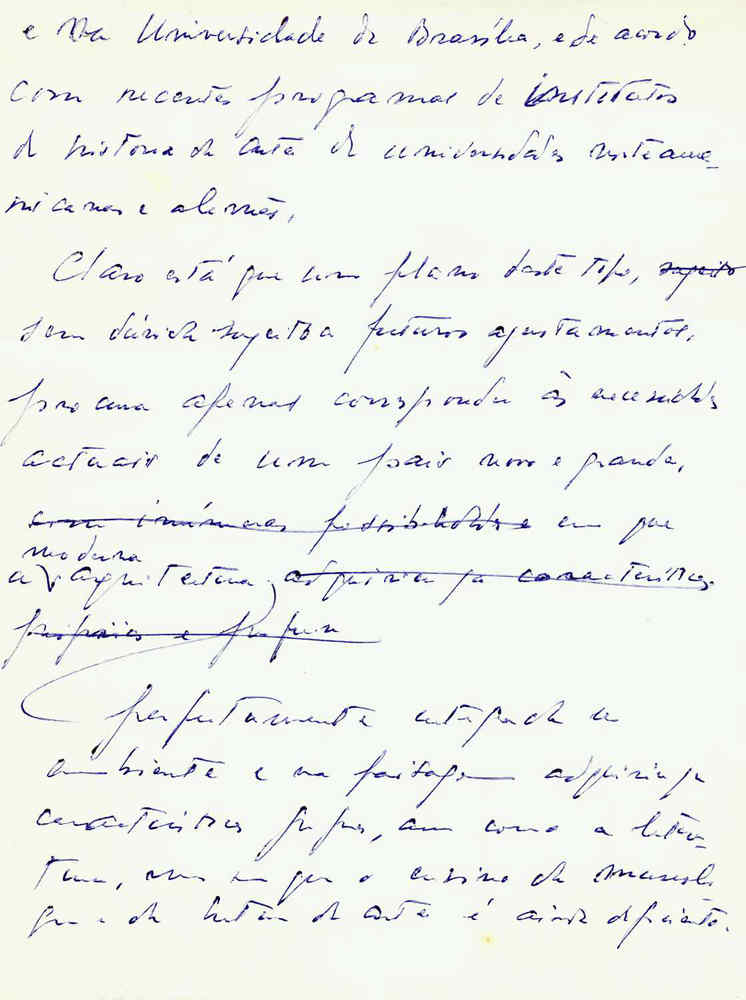 e na Universidade de Brasília, e de acordo
com recentes programas de institutos
de historia da arte de universidades norteame-
ricanas e alemãs.
Claro está que um plano deste tipo, sujeito
sem dúvida sujeito a futuros ajustamentos,
procura apenas corresponder às necessidades
actuais de um pais novo e grande,
com inúmeras possibilidades e em que
moderna
a arquitectura adquiriu ja caracteristicas
próprias e
perfeitamente integrada no
ambiente e na paisagem adquiriu ja
caracteristicas proprias, assim como a litera-
tura, mas em que o ensino da museolo-
gia e da historia da arte é ainda deficiente.